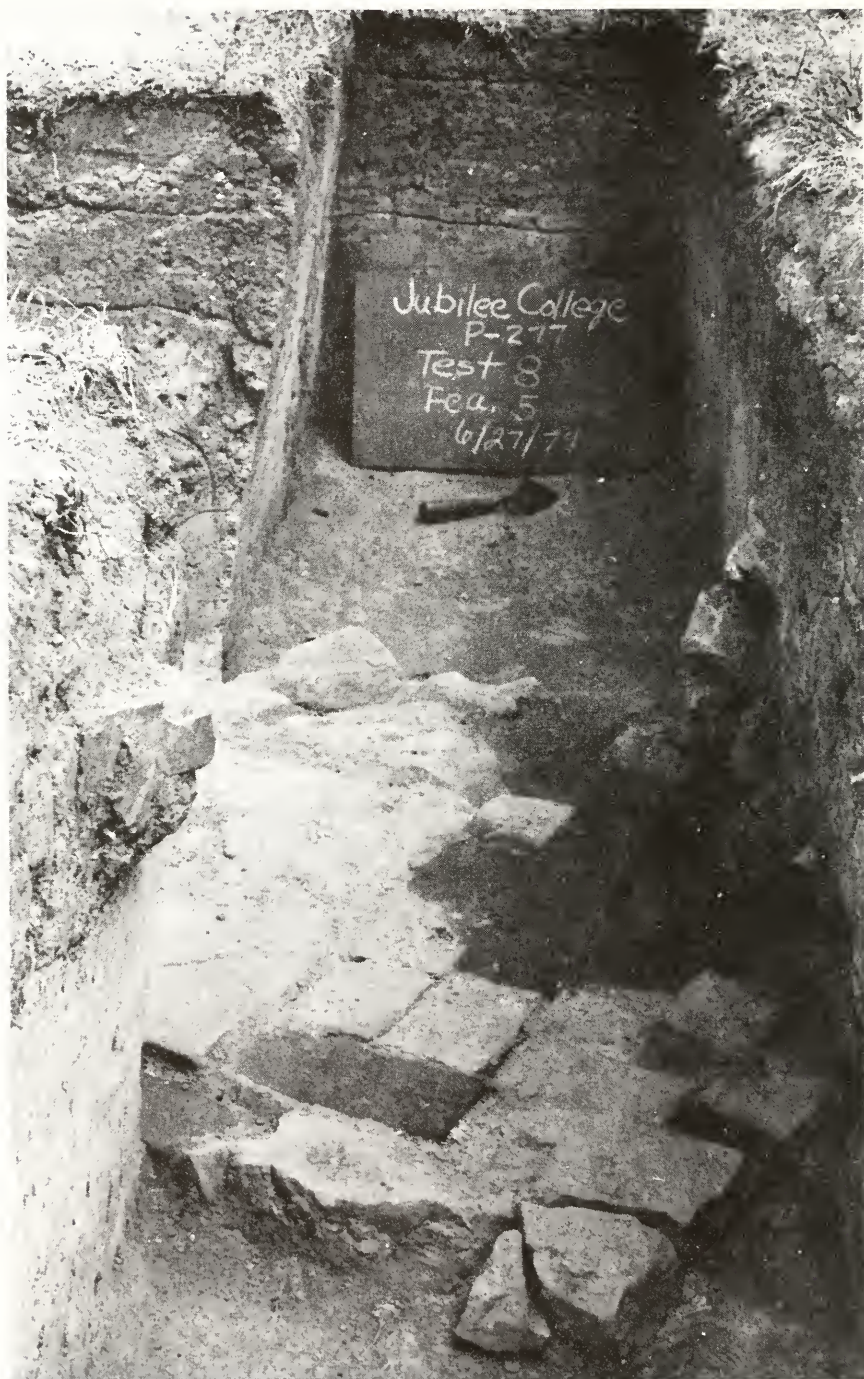 Jubilee College
P-277
Test 8
Fea. 5
6/27/79